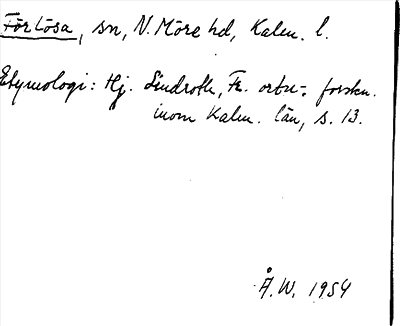 Förlösa, sn, N. Möre hd, Kalm. l.
Etymologi: Hj. Lindroth, Fr. ortn.- forskn.
inom Kalm. län, s. 13.
Å.W. 1954